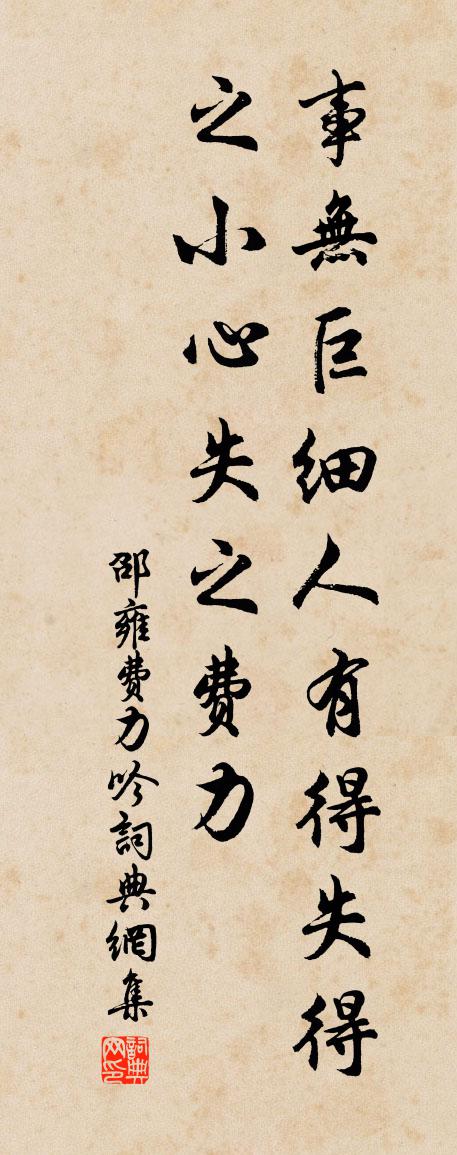 事無巨細人有得失得
之小心失之費力
邵雍費力吟詞典網集
詞典网印